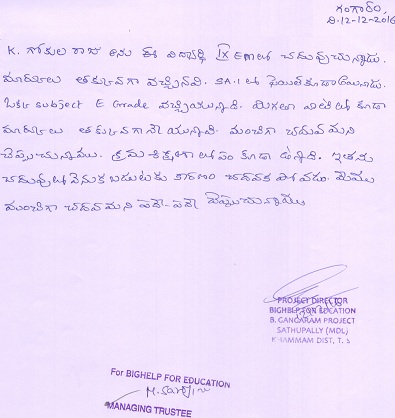 గంగారం,
ది.12-12-2016
K. గోకుల రాజు అను ఈ విద్యార్థి IX EMలో చదువుచున్నాడు.
మార్కులు తక్కువగా వచ్చినవి. SA.1లో ఫెయిల్ కూడా అయినాడు.
ఒక subject E Grade వచ్చియున్నది. మిగతా వాటిలో కూడా
మార్కులు తక్కువగానే యున్నవి. మంచిగా చదువమని
చెప్పుచున్నాము. క్రమశిక్షణా లోపం కూడా ఉన్నది. ఇతను
చదువులో వెనుకబడుటకు కారణం చదవక పోవడం. మేము
మంచిగా చదవమని పదే-పదే చెప్పుచున్నాము
PROJECT DIRECTOR
BIGHELP FOR EDUCATION
B. GANGARAM PROJECT
SATHUPALLY (MDL)
KHAMMAM DIST, T. S
For BIGHELP FOR EDUCATION
MANAGING TRUSTEE